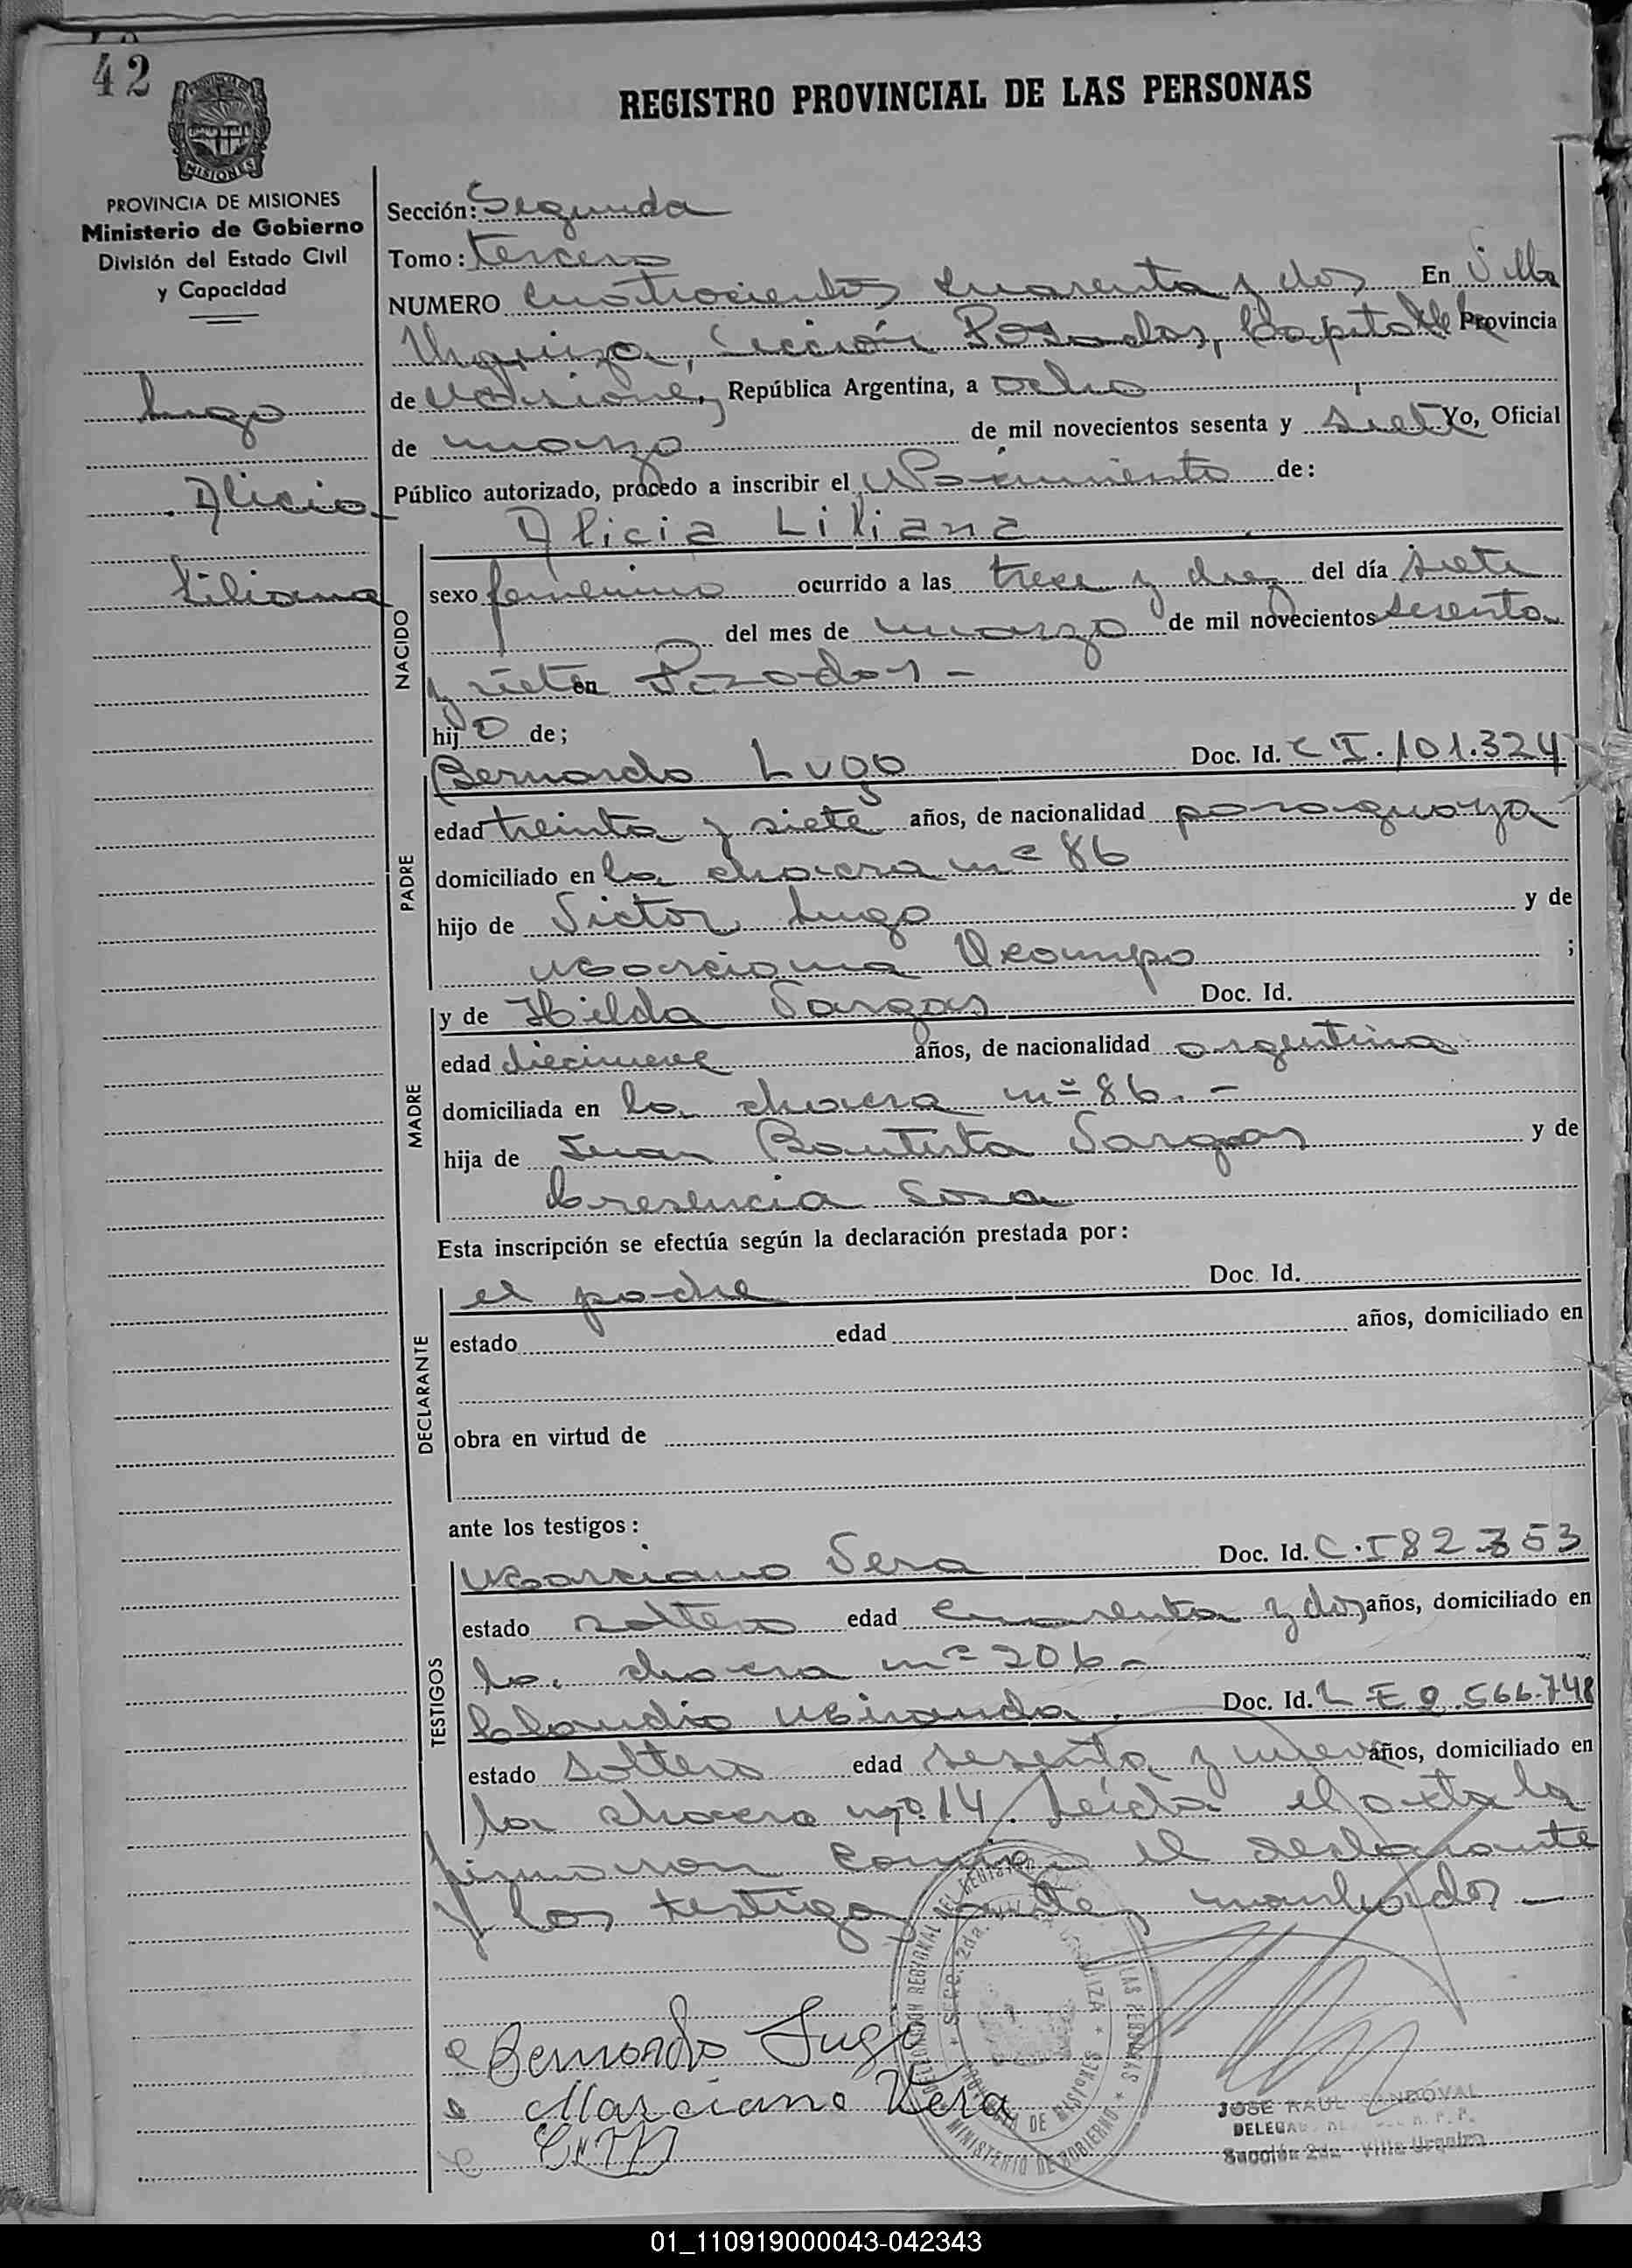 42
REGISTRO PROVINCIAL DE LAS PERSONAS
MISIONES
PROVINCIA DE MISIONES
Ministerio de Gobierno
División del Estado Civil
y Capacidad
Lugo
Alicia
Liliana
Sección: Segunda
Tomo: tercero
NUMERO cuatrocientos cuarenta y dos En Villa
Urquiza, Sección Posadas, Capital de la Provincia
de Misiones, República Argentina, a ocho
de marzo de mil novecientos sesenta y siete Yo, Oficial
Público autorizado, procedo a inscribir el Nacimiento de:
Alicia Liliana
NACIDO
sexo femenino ocurrido a las trece y diez del día siete
del mes de marzo de mil novecientos sesenta
y siete en Posadas -
hij a de;
PADRE
Bernardo Lugo Doc. Id. C I. 101.324
edad treinta y siete años, de nacionalidad paraguaya
domiciliado en la chacra nº 86
hijo de Victor Lugo y de
Marciana Ocampo ;
MADRE
y de Hilda Vargas Doc. Id.
edad diecinueve años, de nacionalidad argentina
domiciliada en la chacra nº 86. -
hija de Juan Bautista Vargas y de
Cresencia Sosa
Esta inscripción se efectúa según la declaración prestada por:
DECLARANTE
el padre Doc. Id.
estado edad años, domiciliado en
obra en virtud de
ante los testigos:
TESTIGOS
Marciano Vera Doc. Id. C. I 82.353
estado soltero edad cuarenta y dos años, domiciliado en
la chacra nº 206 -
Claudio Miranda. Doc. Id. L E 0.566.748
estado soltero edad sesenta y nueve años, domiciliado en
la chacra nº 14. Leída el acta la
firmaron conmigo el declarante
y los testigos antes nombrados -
Bernardo Lugo
Marciano Vera
JOSE RAUL SANDOVAL
Sección 2da - Villa Urquiza
01_110919000043-042343